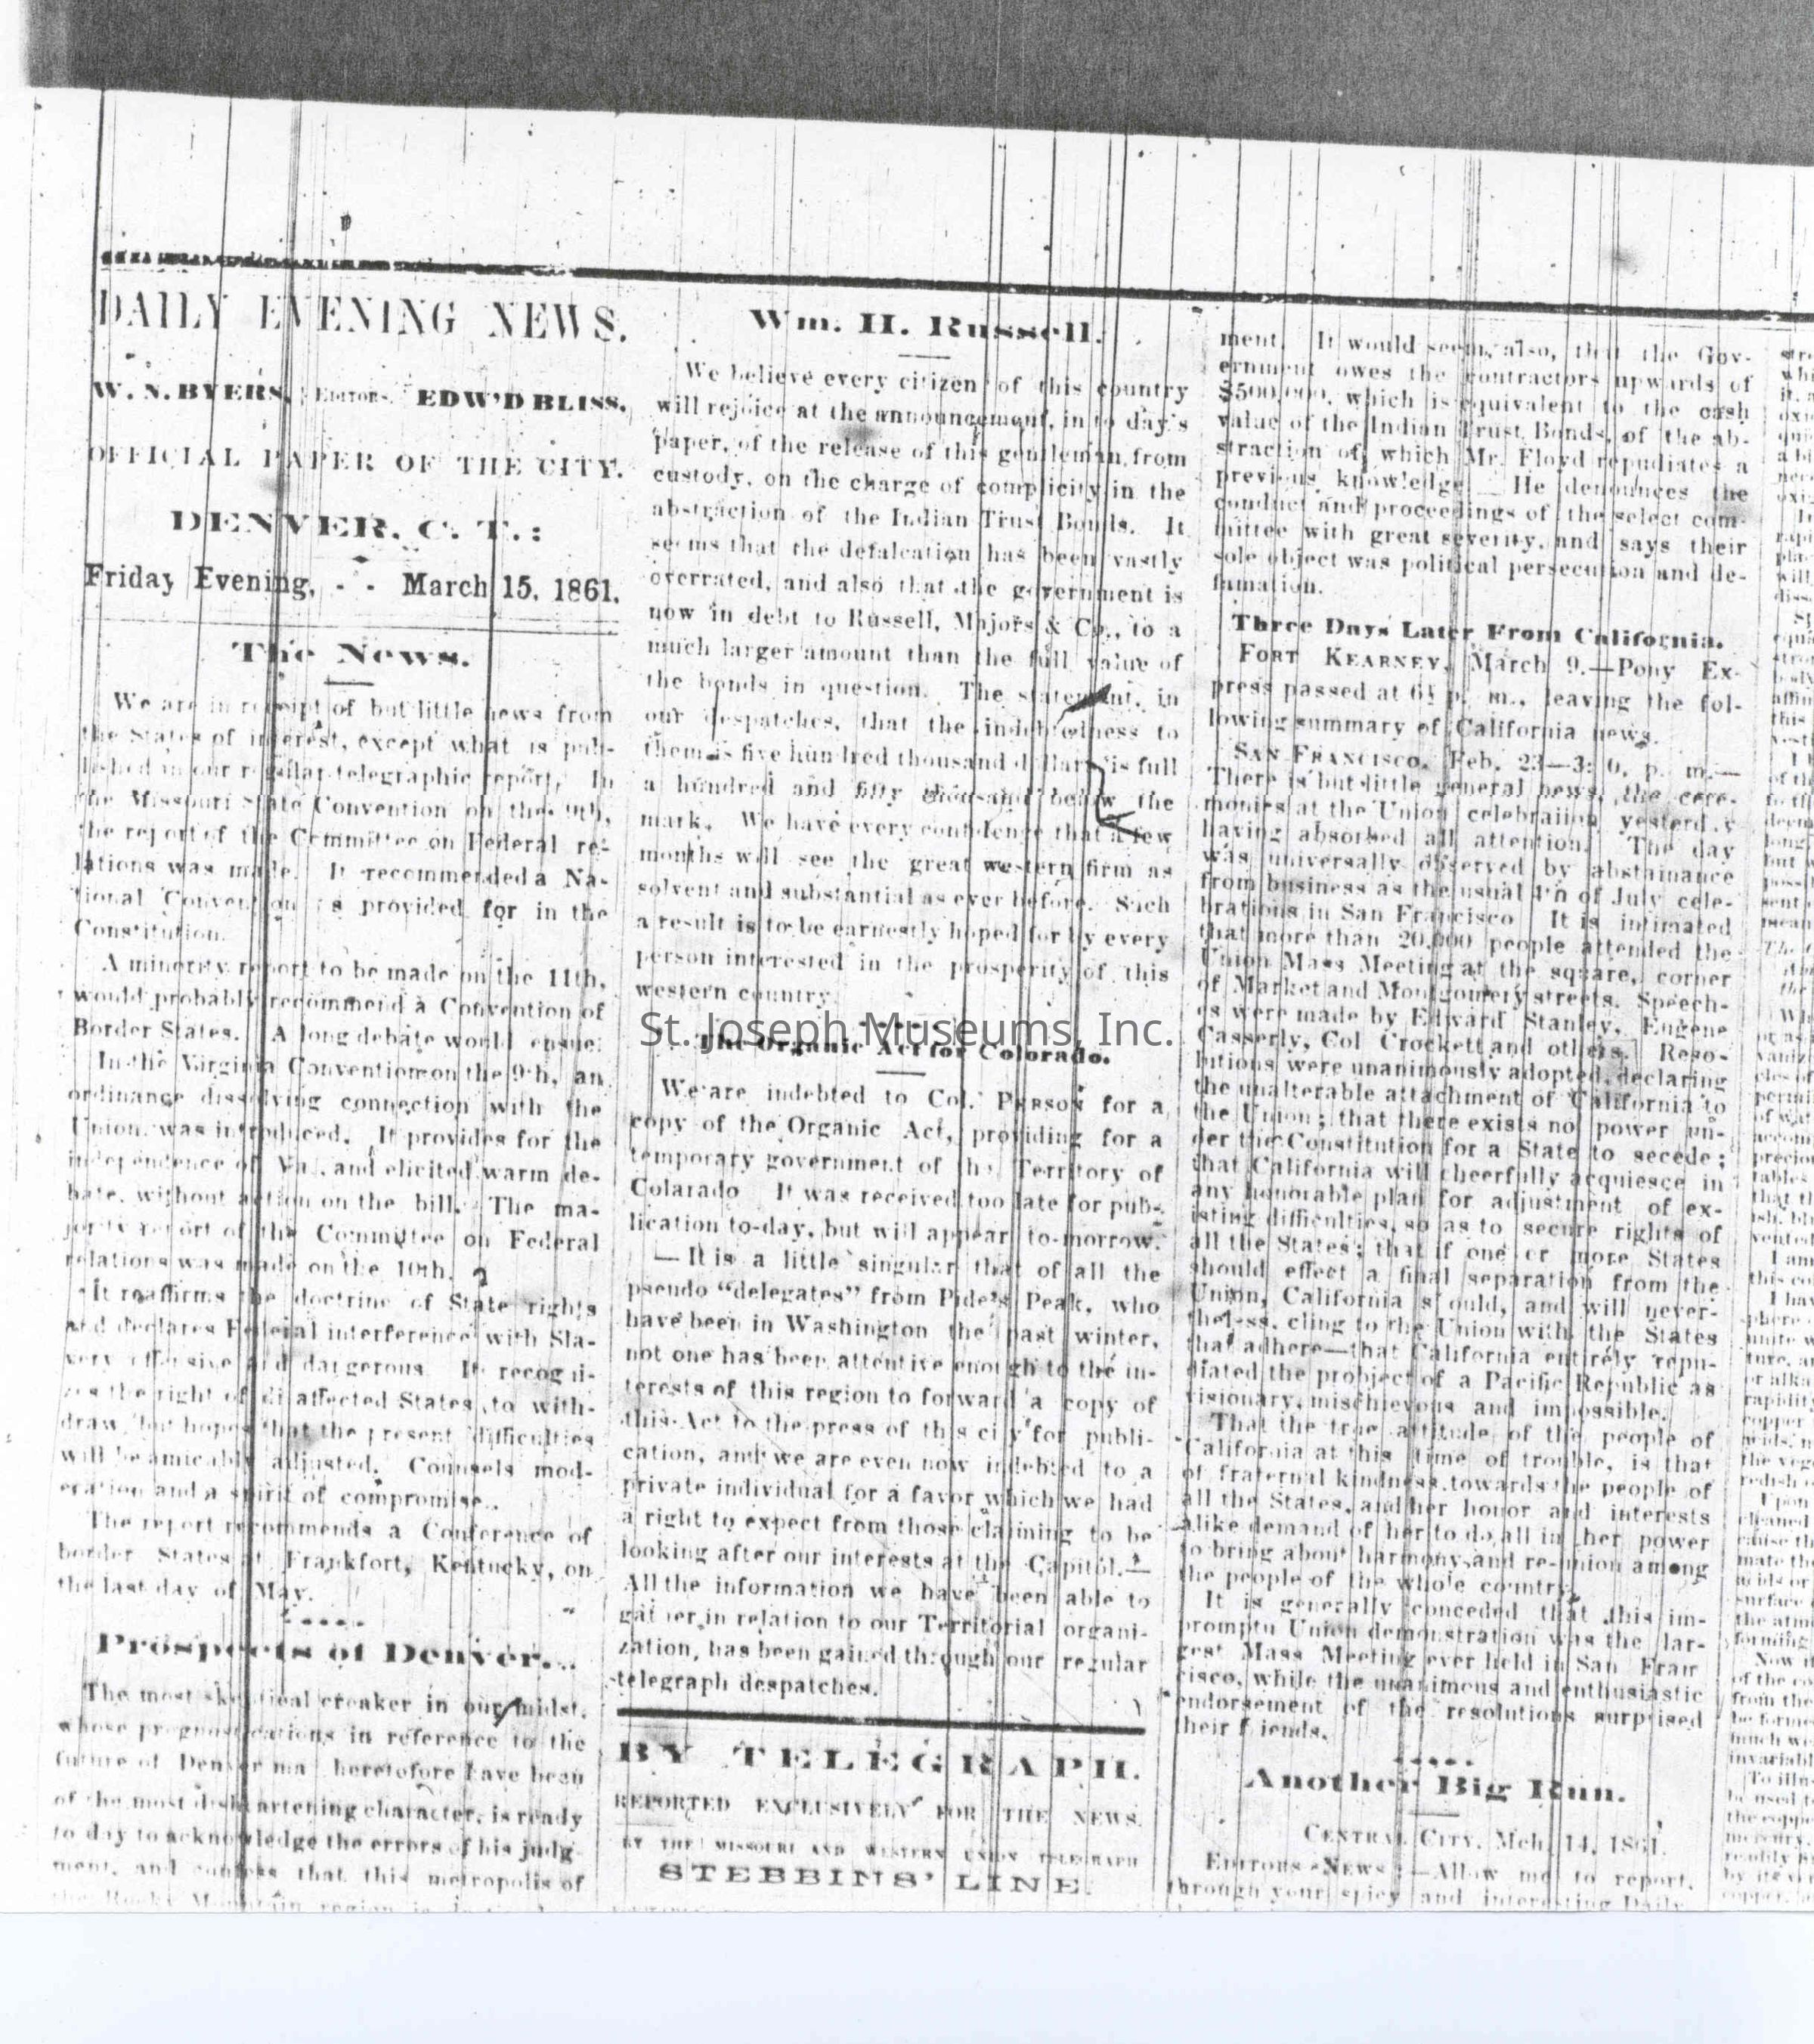 DAILY EVENING NEWS.
W. N. BYERS, Editors. EDW'D BLISS.
OFFICIAL PAPER OF THE CITY.
DENVER, C. T.:
Friday Evening, - - March 15, 1861.
The News.
We are in receipt of but little news from
the States of interest, except what is pub-
lished in our regular telegraphic report. In
the Missouri State Convention on the 9th,
the report of the Committee on Federal re-
lations was made. It recommended a Na-
tional Convention as provided for in the
Constitution.
A minority report to be made on the 11th,
would probably recommend a Convention of
Border States. A long debate would ensue.
In the Virginia Convention on the 9th, an
ordinance dissolving connection with the
Union, was introduced. It provides for the
independence of Va., and elicited warm de-
bate, without action on the bill. The ma-
jority report of the Committee on Federal
relations was made on the 10th.
It reaffirms the doctrine of State rights
and declares Federal interference with Sla-
very offensive and dangerous. It recogni-
zes the right of disaffected States to with-
draw, but hopes that the present difficulties
will be amicably adjusted. Counsels mod-
eration and a spirit of compromise.
The report recommends a Conference of
border States at Frankfort, Kentucky, on
the last day of May.
Prospects of Denver.
The most skeptical croaker in our midst,
whose prognostications in reference to the
future of Denver may heretofore have been
of the most disheartening character, is ready
to day to acknowledge the errors of his judg-
ment, and confess that this metropolis of
the Rocky Mountain region is
Wm. H. Russell.
We believe every citizen of this country
will rejoice at the announcement, in to day's
paper, of the release of this gentleman from
custody, on the charge of complicity in the
abstraction of the Indian Trust Bonds. It
seems that the defalcation has been vastly
overrated, and also that the government is
now in debt to Russell, Majors & Co., to a
much larger amount than the full value of
the bonds in question. The statement, in
our despatches, that the indebtedness to
them is five hundred thousand dollars is full
a hundred and fifty thousand below the
mark. We have every confidence that a few
months will see the great western firm as
solvent and substantial as ever before. Such
a result is to be earnestly hoped for by every
person interested in the prosperity of this
western country.
St. Joseph Museums, Inc.
The Organic Act for Colorado.
We are indebted to Col. PERSON for a
copy of the Organic Act, providing for a
temporary government of the Territory of
Colarado It was received too late for pub-
lication to-day, but will appear to-morrow.
—It is a little singular that of all the
pseudo "delegates" from Pide's Peak, who
have been in Washington the past winter,
not one has been attentive enough to the in-
terests of this region to forward a copy of
this Act to the press of this city for publi-
cation, and we are even now indebted to a
private individual for a favor which we had
a right to expect from those claiming to be
looking after our interests at the Capitol.—
All the information we have been able to
gather in relation to our Territorial organi-
zation, has been gained through our regular
telegraph despatches.
BY TELEGRAPH.
REPORTED EXCLUSIVELY FOR THE NEWS.
BY THE MISSOURI AND WESTERN UNION TELEGRAPH
STEBBINS' LINE.
ment. It would seem, also, that the Gov-
ernment owes the contractors upwards of
$500,000, which is equivalent to the cash
value of the Indian Trust Bonds, of the ab-
straction of which Mr. Floyd repudiates a
previous knowledge.— He denounces the
conduct and proceedings of the select com-
mittee with great severity, and says their
sole object was political persecution and de-
famation.
Three Days Later From California.
FORT KEARNEY, March 9.—Pony Ex-
press passed at 6½ p. m., leaving the fol-
lowing summary of California news.
SAN FRANCISCO, Feb. 23— p. m.—
There is but little general news, the cere-
monies at the Union celebraiion yesterday
having absorbed all attention. The day
was universally observed by abstainance
from business as the usual 4th of July cele-
brations in San Francisco It is intimated
that more than 20,000 people attended the
Union Mass Meeting at the square, corner
of Market and Montgomery streets. Speech-
es were made by Edward Stanley, Eugene
Casserly, Col Crockett and others. Reso-
lutions were unanimously adopted, declaring
the unalterable attachment of California to
the Union; that there exists no power un-
der the Constitution for a State to secede;
that California will cheerfully acquiesce in
any honorable plan for adjustment of ex-
isting difficulties, so as to secure rights of
all the States; that if one or more States
should effect a final separation from the
Union, California should, and will never-
theless, cling to the Union with the States
that adhere—that California entirely repu-
diated the probject of a Pacific Republic as
visionary, mischievous and impossible.
That the true attitude of the people of
California at this time of trouble, is that
of fraternal kindness towards the people of
all the States, and her honor and interests
alike demand of her to do all in her power
to bring about harmony and re-union among
the people of the whole country.
It is generally conceded that this im-
promptu Union demonstration was the lar-
gest Mass Meeting ever held in San Fran
cisco, while the unanimous and enthusiastic
endorsement of the resolutions surprised
their friends.
Another Big Run.
CENTRAL CITY, Mch. 14, 1861.
EDITORS NEWS:—Allow me to report,
through your spicy and interesting Daily